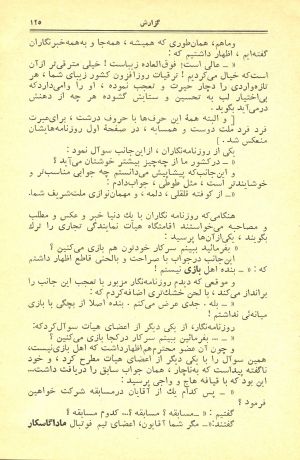 گزارش ۱۲۵
وماهم، همان‌طوری که همیشه، همه‌جا و به‌همه‌خبرنگاران
گفته‌ایم، اظهار داشتیم که:
« ـ عالی است؛ فوق‌العاده زیباست! خیلی مترقی‌تر از آن
است‌که خیال می‌کردیم! ترقیات روزافزون کشور زیبای شما، هر
تازه‌واردی را دچار حیرت و تعجب نموده، او را وامی‌داردکه
بی‌اختیار لب به تحسین و ستایش گشوده هر چه از دهنش
درمی‌آید بگوید.
[ و البته همهٔ این حرف‌ها با حروف درشت، برای‌عبرت
فرد فرد ملت دوست و همسایه، در صفحهٔ اول روزنامه‌هایشان
منعکس شد. ]
یکی از روزنامه‌نگاران، ازاین‌جانب سوآل نمود:
« ـ درکشور ما از چه‌چیز بیشتر خوشتان می‌آید؟
و این‌جانب‌که پیشاپیش می‌دانستم چه جوابی مناسب‌تر و
خوشایندتر است، مثل طوطی، جواب‌دادم:
« ـ از کوفته قلقلی، دلمه، و مهمان‌نوازی ملت‌شریف شما.
هنگامی‌که روزنامه نگاران با یک دنیا خبر و عکس و مطلب
و مصاحبه می‌خواستند اقامتگاه هیأت نمایندگی تجاری را ترک
بگویند، یکی‌ازآن‌ها پرسید:
« ـ بفرمائید ببینم سرکار خودتون هم بازی می‌کنین؟
این‌جانب درجواب با صراحت و بالحنی قاطع اظهار داشتم
که: « ـ بنده اهل بازی نیستم!
و موقعی که دیدم روزنامه‌نگار مزبور با تعجب این جانب را
برانداز می‌کند، با لحن خشک‌تری اضافه‌کردم که:
« ـ بله. جدی عرض می‌کنم. بنده اصلا از بچگی با بازی
میانه‌ئی نداشتم!
روزنامه‌نگار، از یکی دیگر از اعضای هیأت سوآل‌کردکه:
« ـ ... بفرمائین ببینم سرکار درکجا بازی می‌کنین؟
و چون آن عضو محترم‌هم‌اظهارداشت که اهل بازی‌نیست،
همین سوآل را با یکی دیگر از اعضای هیأت مطرح کرد، و خود
ناگفته پیداست که به‌ناچار، همان جواب سابق را دریافت داشت...
این بود که با قیافه هاج و واجی پرسید:
« ـ پس کدام یک از آقایان درمسابقه شرکت خواهین
فرمود؟
گفتیم: « ـ مسابقه؟ مسابقه؟... کدوم مسابقه؟
گفتند: « ـ مگر شما آقایون، اعضای تیم فوتبال ماداگاسکار